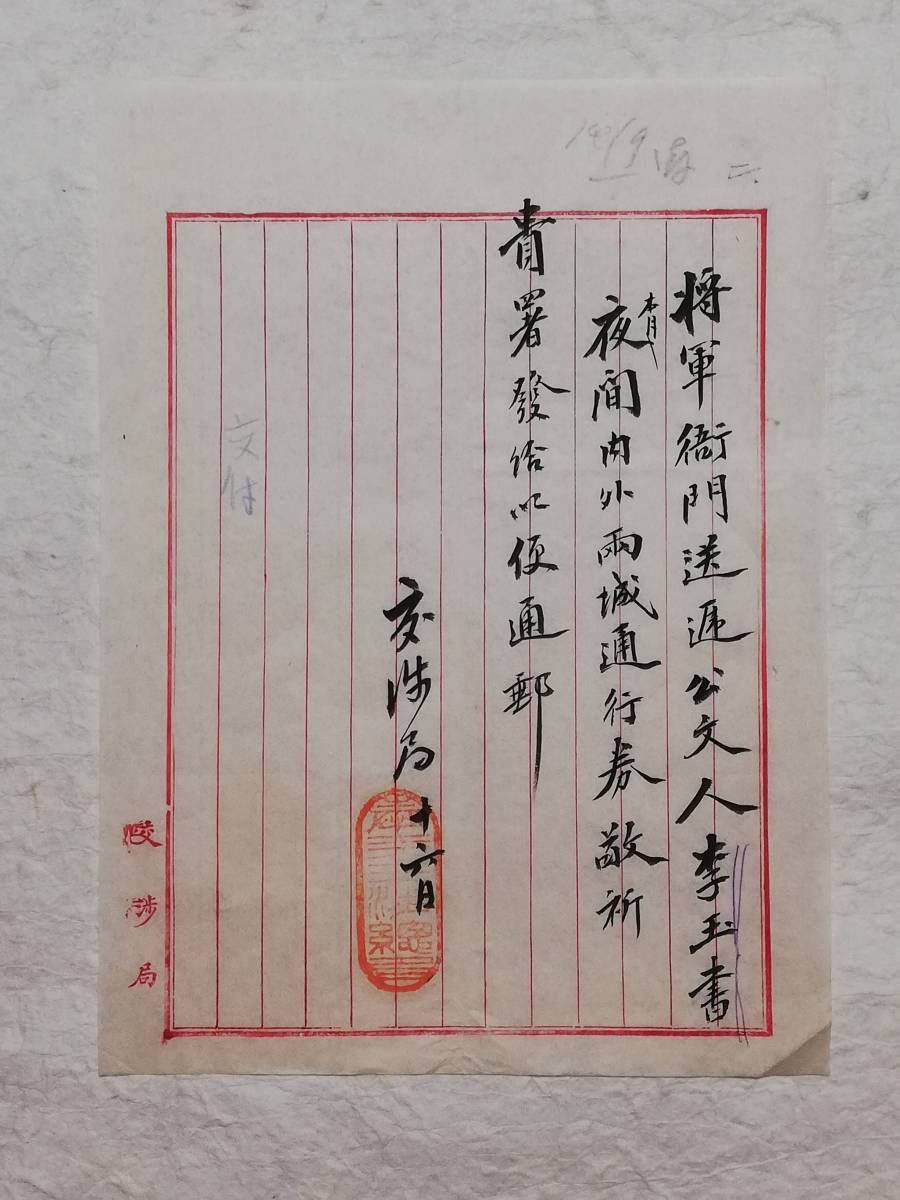 二、
將軍衙門送遞公文人李玉書
本月
夜間內外兩城通行券敬祈
貴署發給以便通郵
交涉局十六日
交涉局